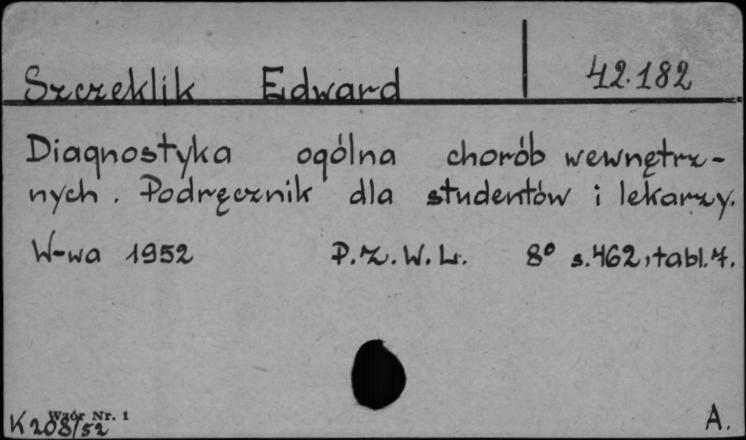 Szczeklik Edward 42.182
Diagnostyka ogólna chorób wewnętrz-
nych. Podręcznik dla studentów i lekarzy.
W-wa 1952 P.Z.W.L. 8° s.462, tabl.7.
Wzór Nr. 1
K 208/52 A.